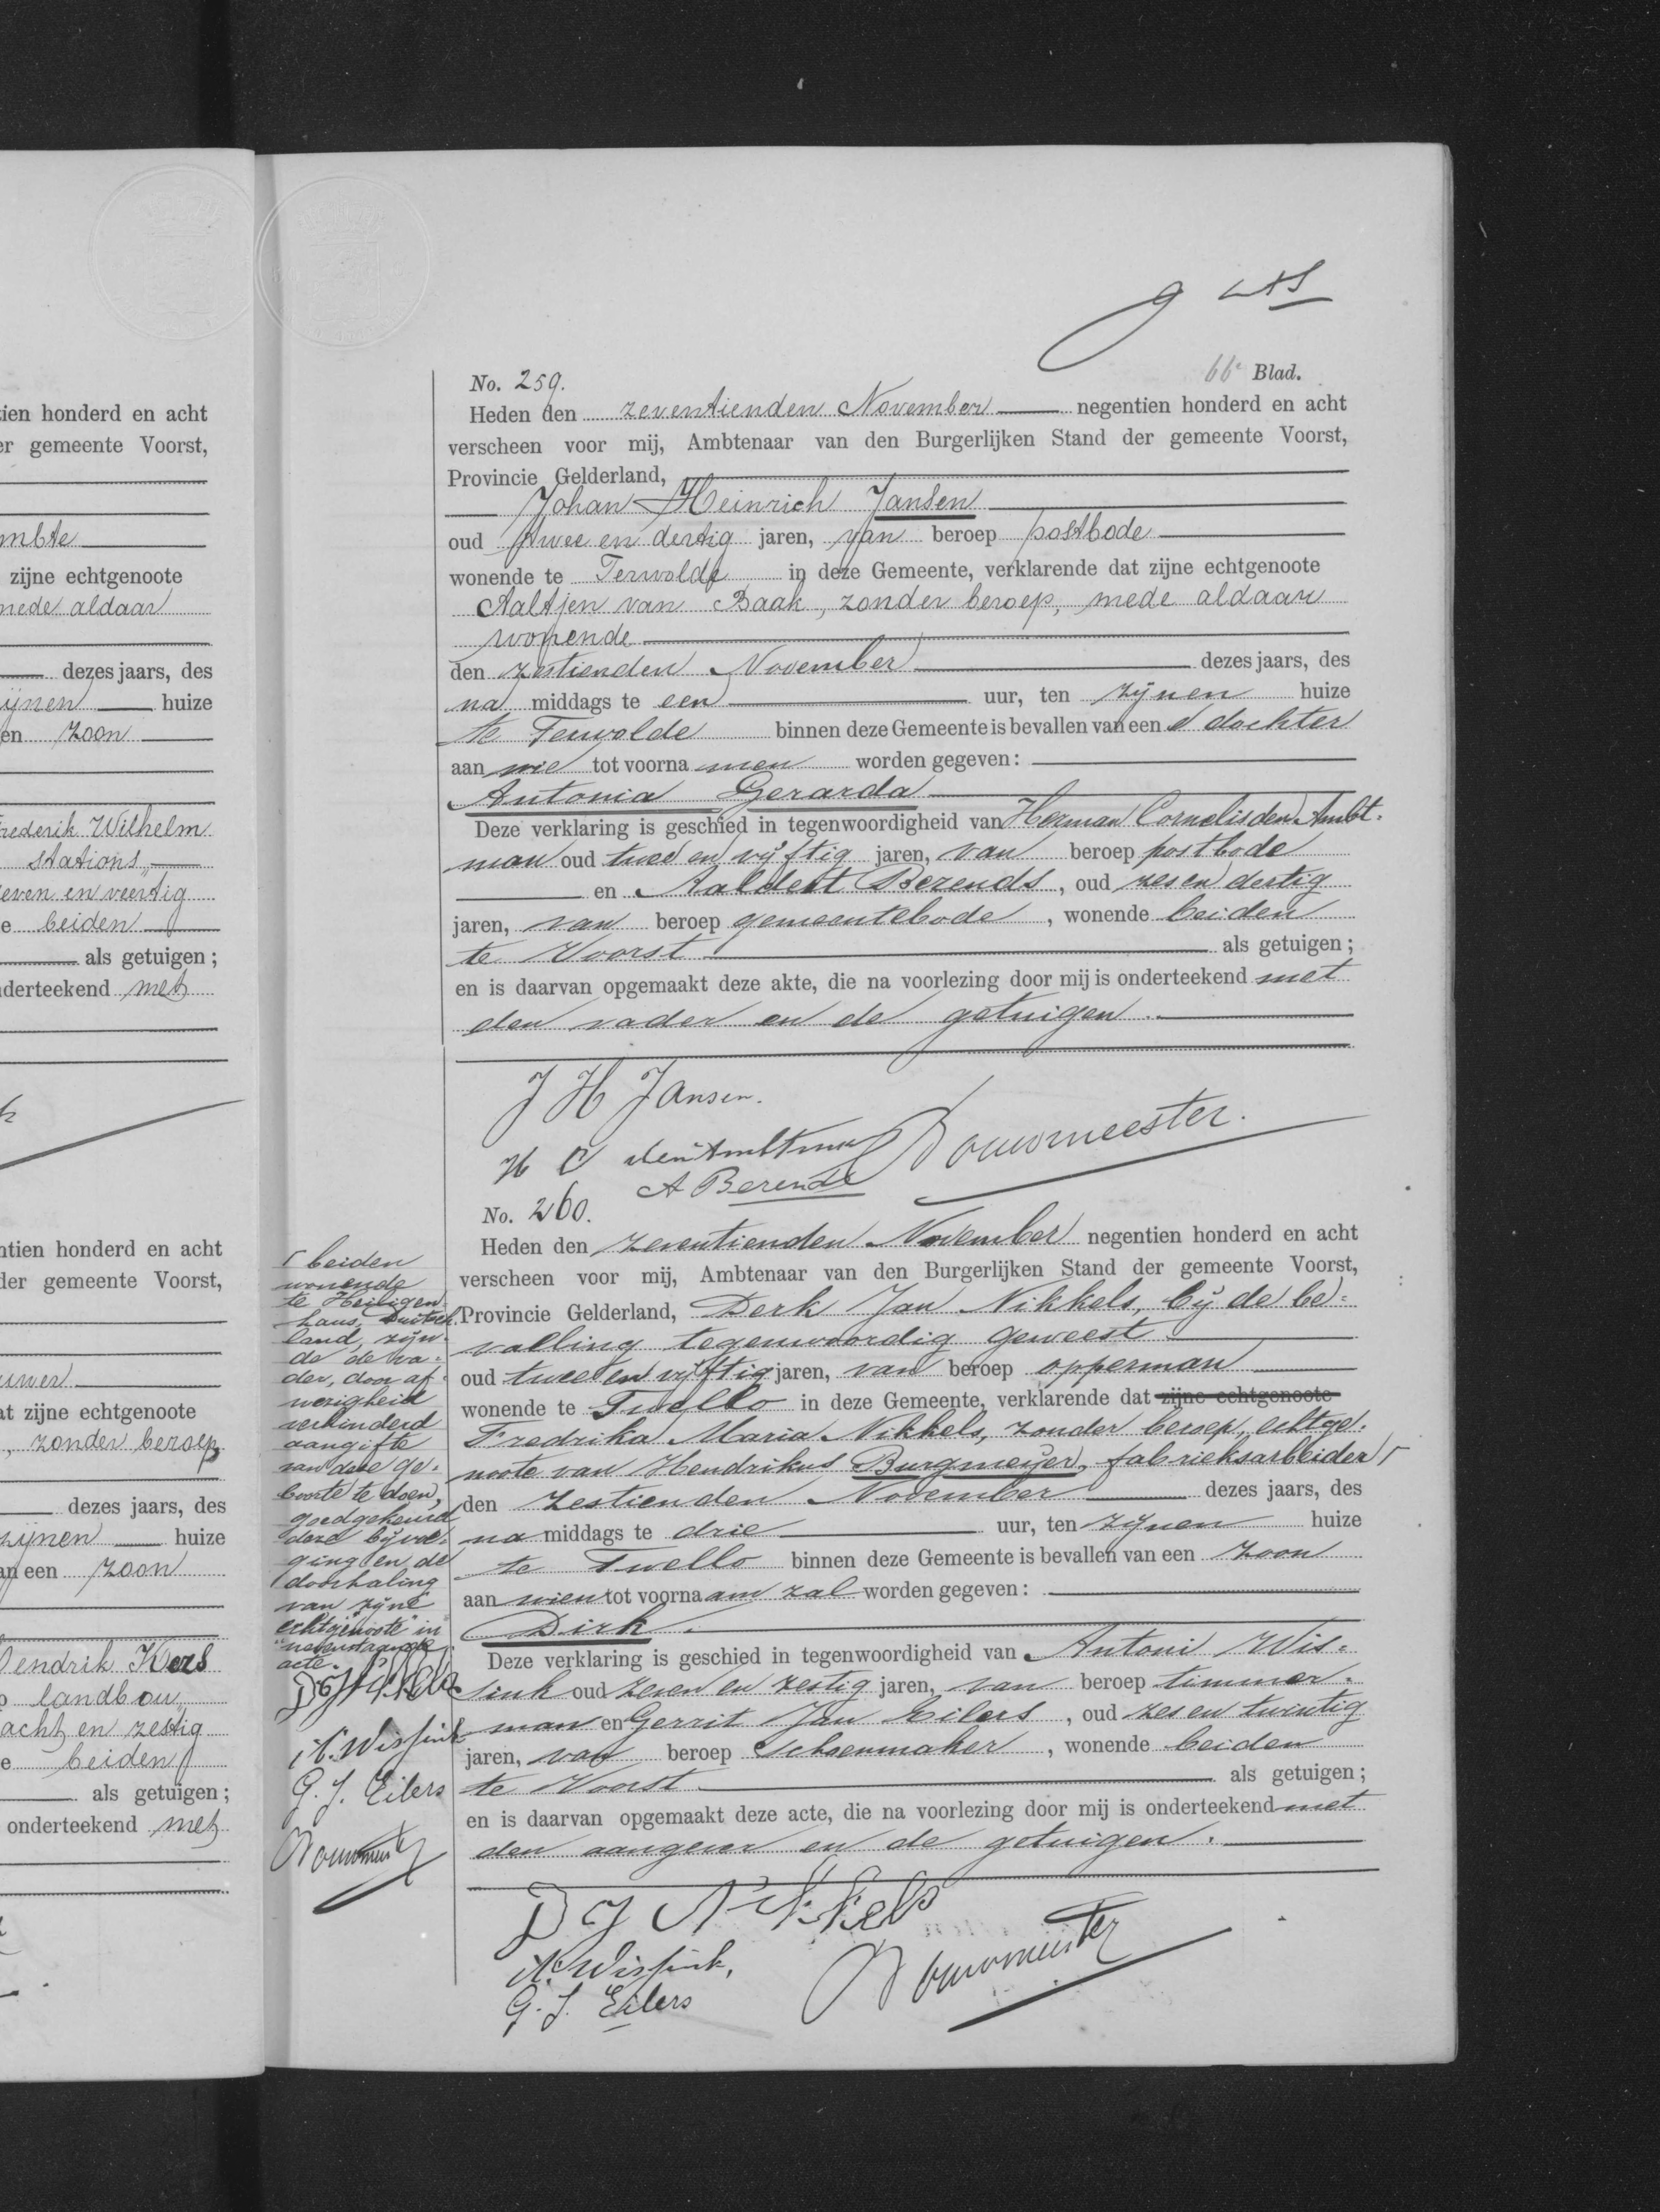 tien honderd en acht
er gemeente Voorst,
mbte
zijne echtgenoote
mede aldaar
dezes jaars, des
ijnen huize
en zoon
rederik Wilhelm
stations
even en veertig
e beiden
als getuigen;
derteekend met
ntien honderd en acht
der gemeente Voorst,
uwer
at zijne echtgenoote
, zonder beroep
dezes jaars, des
zijnen huize
an een zoon
Hendrik Kers
p landbou
acht en zestig
e beiden
als getuigen;
onderteekend met
66e Blad.
No. 259.
Heden den zeventienden November negentien honderd en acht
verscheen voor mij, Ambtenaar van den Burgerlijken Stand der gemeente Voorst,
Provincie Gelderland,
Johan Heinrich Jansen
oud twee en dertig jaren, van beroep postbode
wonende te Terwolde in deze Gemeente, verklarende dat zijne echtgenoote
Aaltjen van Baak, zonder beroep, mede aldaar
wonende
den zestienden November dezes jaars, des
na middags te een uur, ten zijnen huize
te Terwolde binnen deze Gemeente is bevallen van een e dochter
aan wie tot voorna men worden gegeven:
Antonia Gerarda
Deze verklaring is geschied in tegenwoordigheid van Herman Cornelis den Ambt-
man oud twee en vijftig jaren, van beroep postbode
en Aaldert Berends, oud zes en dertig
jaren, van beroep gemeentebode, wonende beiden
te Voorst als getuigen;
en is daarvan opgemaakt deze akte, die na voorlezing door mij is onderteekend met
den vader en de getuigen.
J H Jansen.
H C den Ambtman
A Berends
Bouwmeester.
No. 260.
Heden den zeventienden November negentien honderd en acht
verscheen voor mij, Ambtenaar van den Burgerlijken Stand der gemeente Voorst,
Provincie Gelderland, Derk Jan Nikkels, bij de be-
valling tegenwoordig geweest
oud twee en vijftig jaren, van beroep opperman
wonende te Twello in deze Gemeente, verklarende dat zijne echtgenoote
Fredrika Maria Nikkels, zonder beroep, echtge-
noote van Hendrikus Burgmeijer, fabrieksarbeider
den zestienden November dezes jaars, des
na middags te drie uur, ten zijnen huize
te Twello binnen deze Gemeente is bevallen van een zoon
aan wien tot voorna am zal worden gegeven:
Dirk.
Deze verklaring is geschied in tegenwoordigheid van Antoni Wis-
sink oud zeven en zestig jaren, van beroep timmer-
man en Gerrit Jan Eilers, oud zes en twintig
jaren, van beroep schoenmaker, wonende beiden
te Voorst als getuigen;
en is daarvan opgemaakt deze acte, die na voorlezing door mij is onderteekend met
den aangever en de getuigen.
D J Nikkels
A. Wissink,
G. J. Eilers
Bouwmeester
beiden
wonende
te Heiligen
haus, Duitsch
land, zijn-
de de va-
der, door af-
wezigheid
verhinderd
aangifte
van deze ge-
boorte te doen,
goedgekeurd
deze bijvoe-
ging en de
doorhaling
van "zijne
echtgenoote" in
nevenstaande
acte.
D J Nikkels
A. Wissink
G. J. Eilers
Bouwmeester